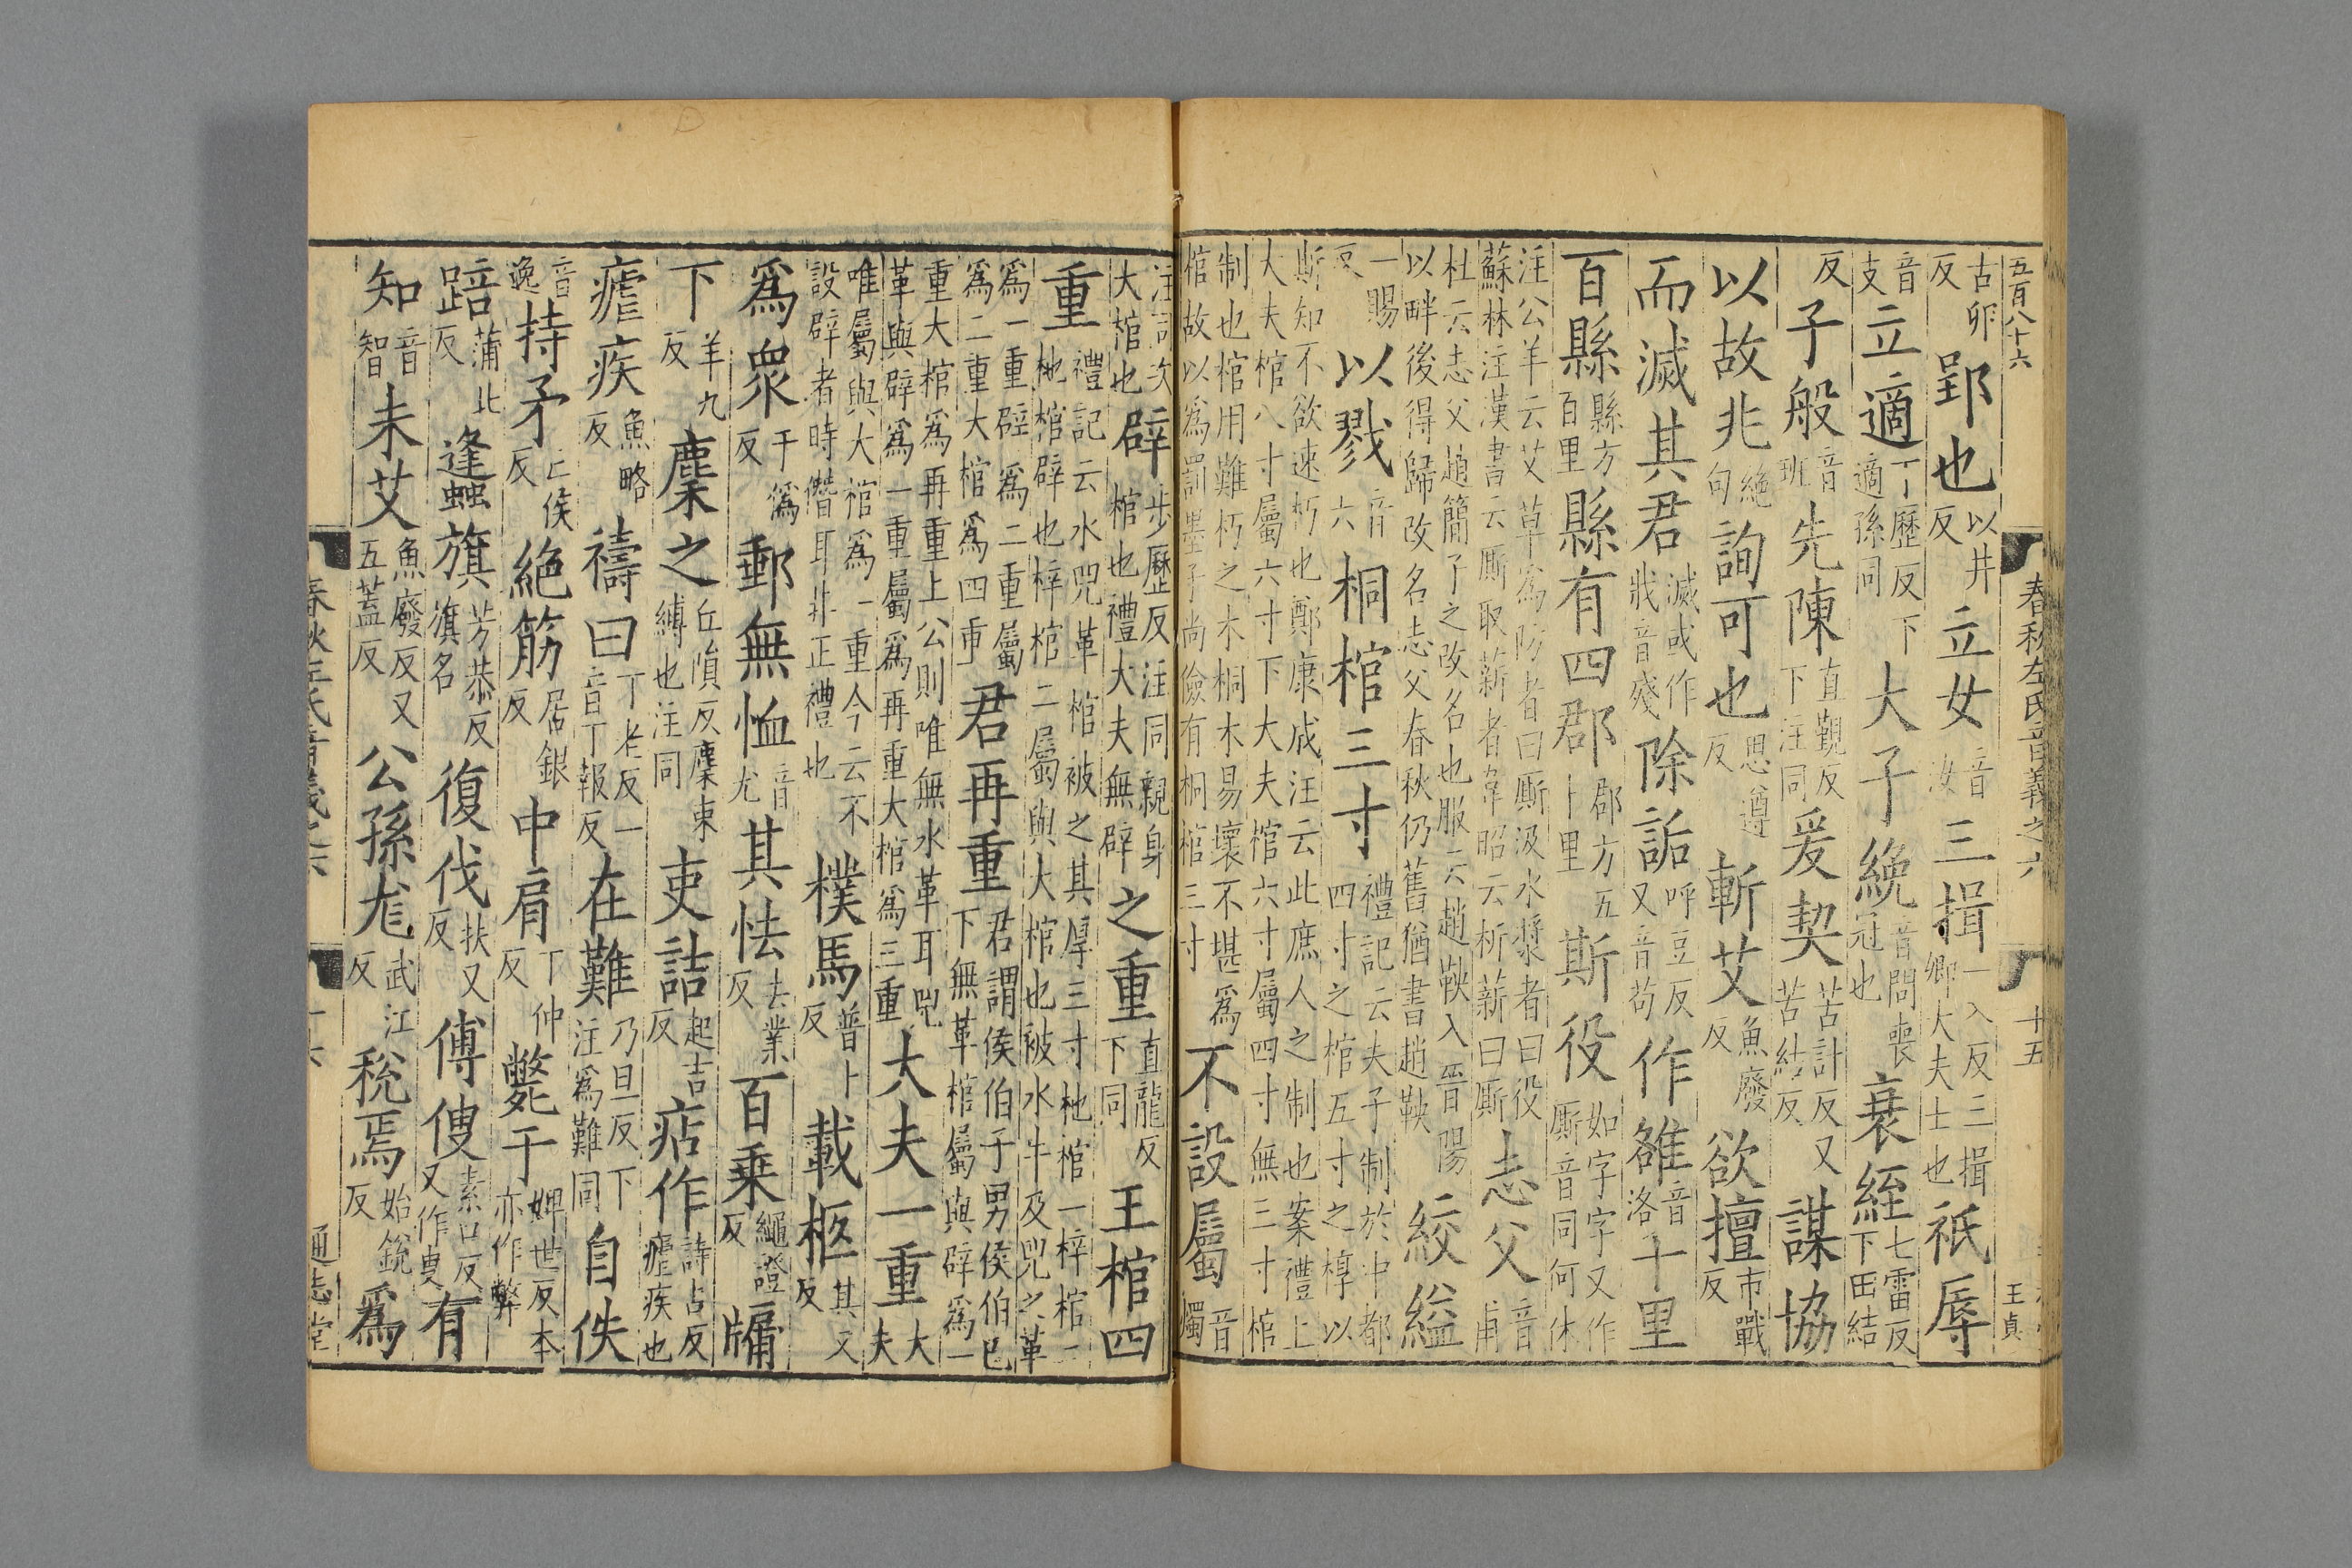 五百八十六 春秋左氏音義之六 十五 王貞
古卯反郢也以井反立女音汝三揖一入反三揖卿大夫士也祇辱
音支立適丁歷反下適孫同大子絻音問喪冠也衰絰七雷反下田結
反子般音班先陳直覲反下注同爰契苦計反又苦結反謀協
以故兆絶句詢可也思遵反斬艾魚廢反欲擅市戰反
而滅其君滅或作戕音殘除詬呼豆反又音苟作雒音洛千里
百縣縣方百里縣有四郡郡方五十里斯役如字字又作廝音同何休
注公羊云艾草爲防者曰廝汲水漿者曰役蘇林注漢書云廝取薪者韋昭云析薪曰廝志父音甫
杜云志父趙簡子之改名也服云趙鞅入晉陽以畔後得歸改名志父春秋仍舊猶書趙鞅絞縊
一賜反以戮音六桐棺三寸禮記云夫子制於中都四寸之棺五寸之椁以
斯知不欲速朽也鄭康成注云此庶人之制也案禮上大夫棺八寸屬六寸下大夫棺六寸屬四寸無三寸棺
制也棺用難朽之木桐木易壞不堪爲棺故以爲罰墨子尚儉有桐棺三寸不設屬音燭
注同次大棺也辟步歷反注同親身棺也禮大夫無辟之重直龍反下同王棺四
重禮記云水兕革棺被之其厚三寸杝棺一梓棺二杝棺辟也梓棺二屬與大棺也被水牛及兕之革
爲一重辟爲二重屬爲二重大棺爲四重君再重君謂侯伯子男侯伯已下無革棺屬與辟爲一
重大棺爲再重上公則唯無水革耳兕革與辟爲一重屬爲再重大棺爲三重大夫一重大夫
唯屬與大棺爲一重今云不設辟者時僭耳非正禮也樸馬普卜反載柩其又反
爲衆于僞反郵無恤音尤其怯去業反百乘繩證反牖
下羊九反麇之丘隕反麇束縛也注同吏詰起吉反痁作詩占反瘧疾也
瘧疾魚略反禱曰丁老反一音丁報反在難乃旦反下注爲難同自佚
音逸持矛亡侯反絶筋居銀反中肩丁仲反斃于婢世反本亦作弊
踣蒲北反蠭旗芳恭反旗名復伐扶又反傅傁素口反又作叟有
知音智未艾魚廢反又五蓋反公孫尨武江反稅焉始銳反爲
春秋左氏音義之六 十六 通志堂